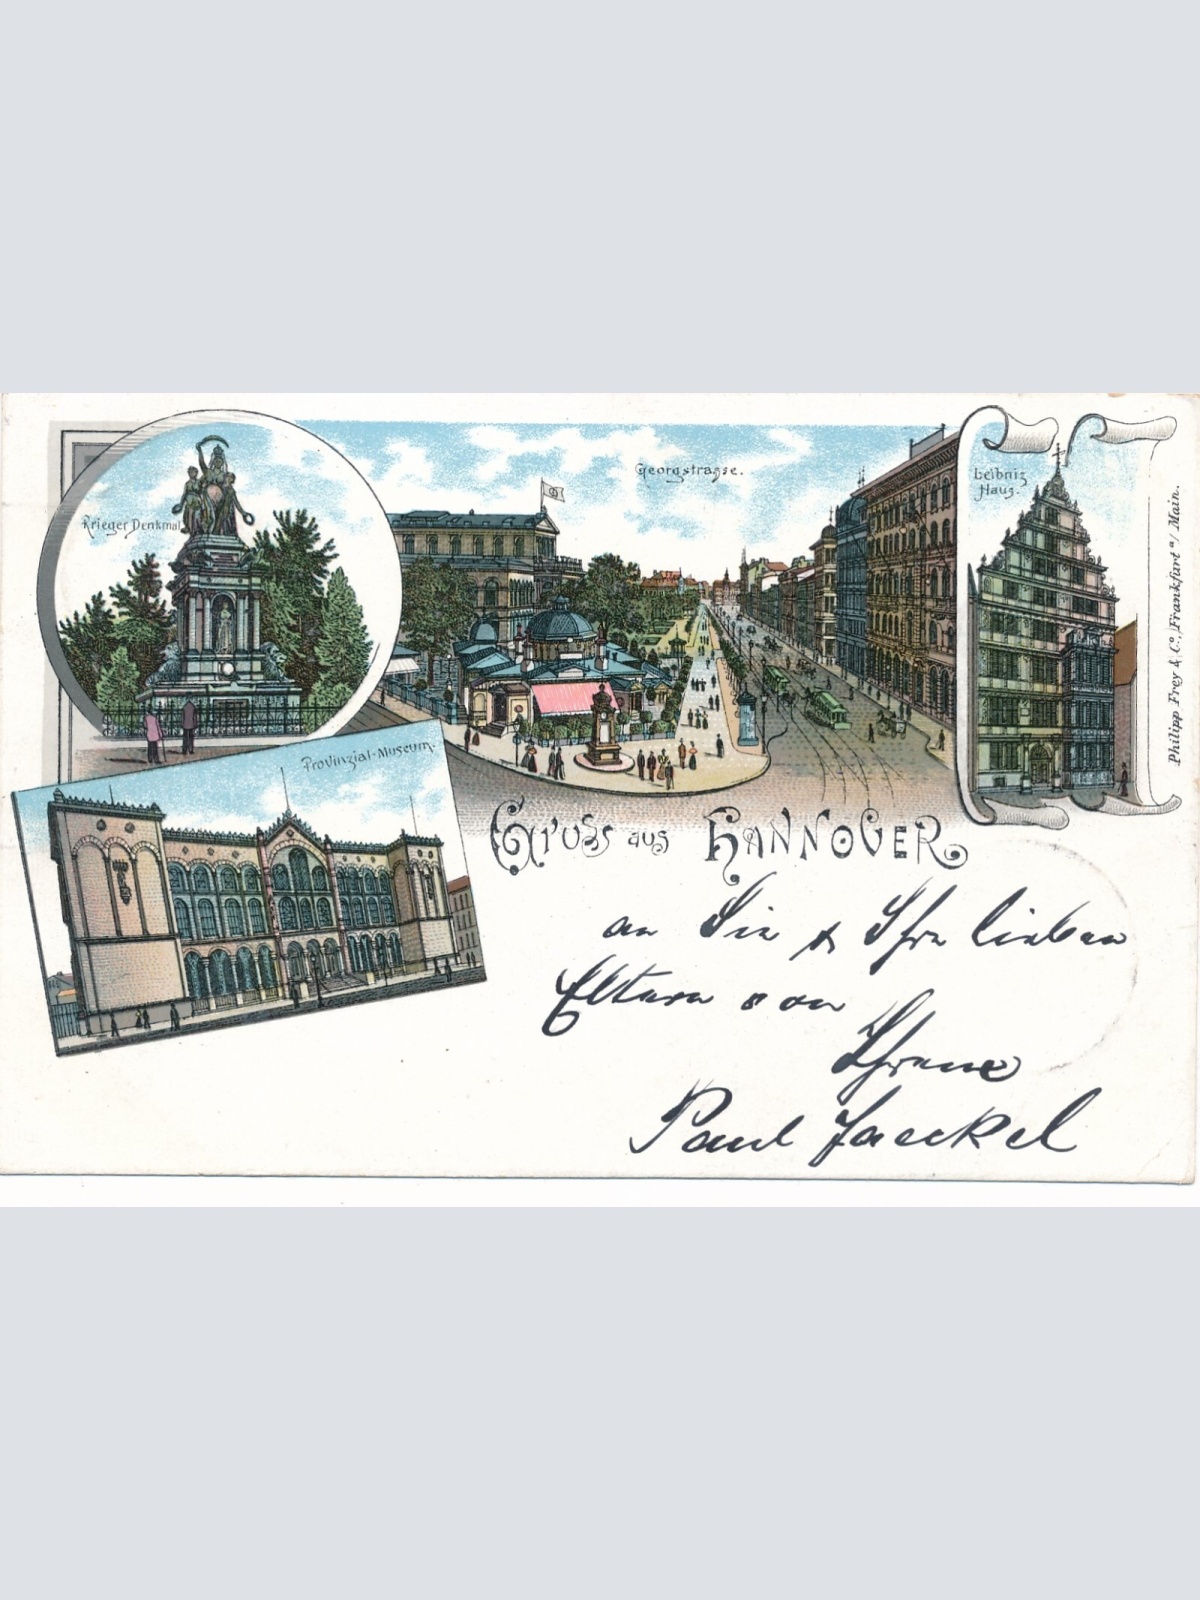 Krieger Denkmal
Georgstrasse.
Leibniz
Haus.
Philipp Frey & Co., Frankfurt a/Main.
Provinzial-Museum.
Gruss aus HANNOVER
an Sie & Ihre lieben
Eltern von
Ihrem
Paul Jaeckel